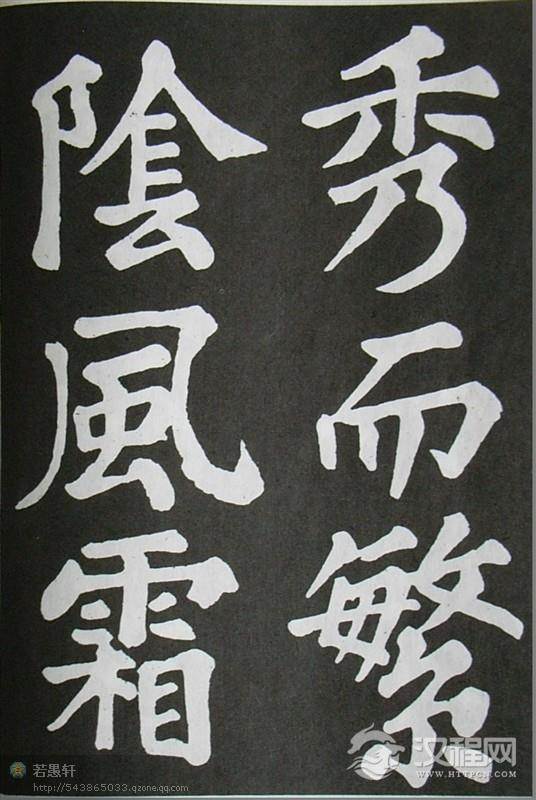 秀而繁
陰風霜
若愚轩
http://543865033.qzone.qq.com
汉程网
WWW.HTTPCN.COM